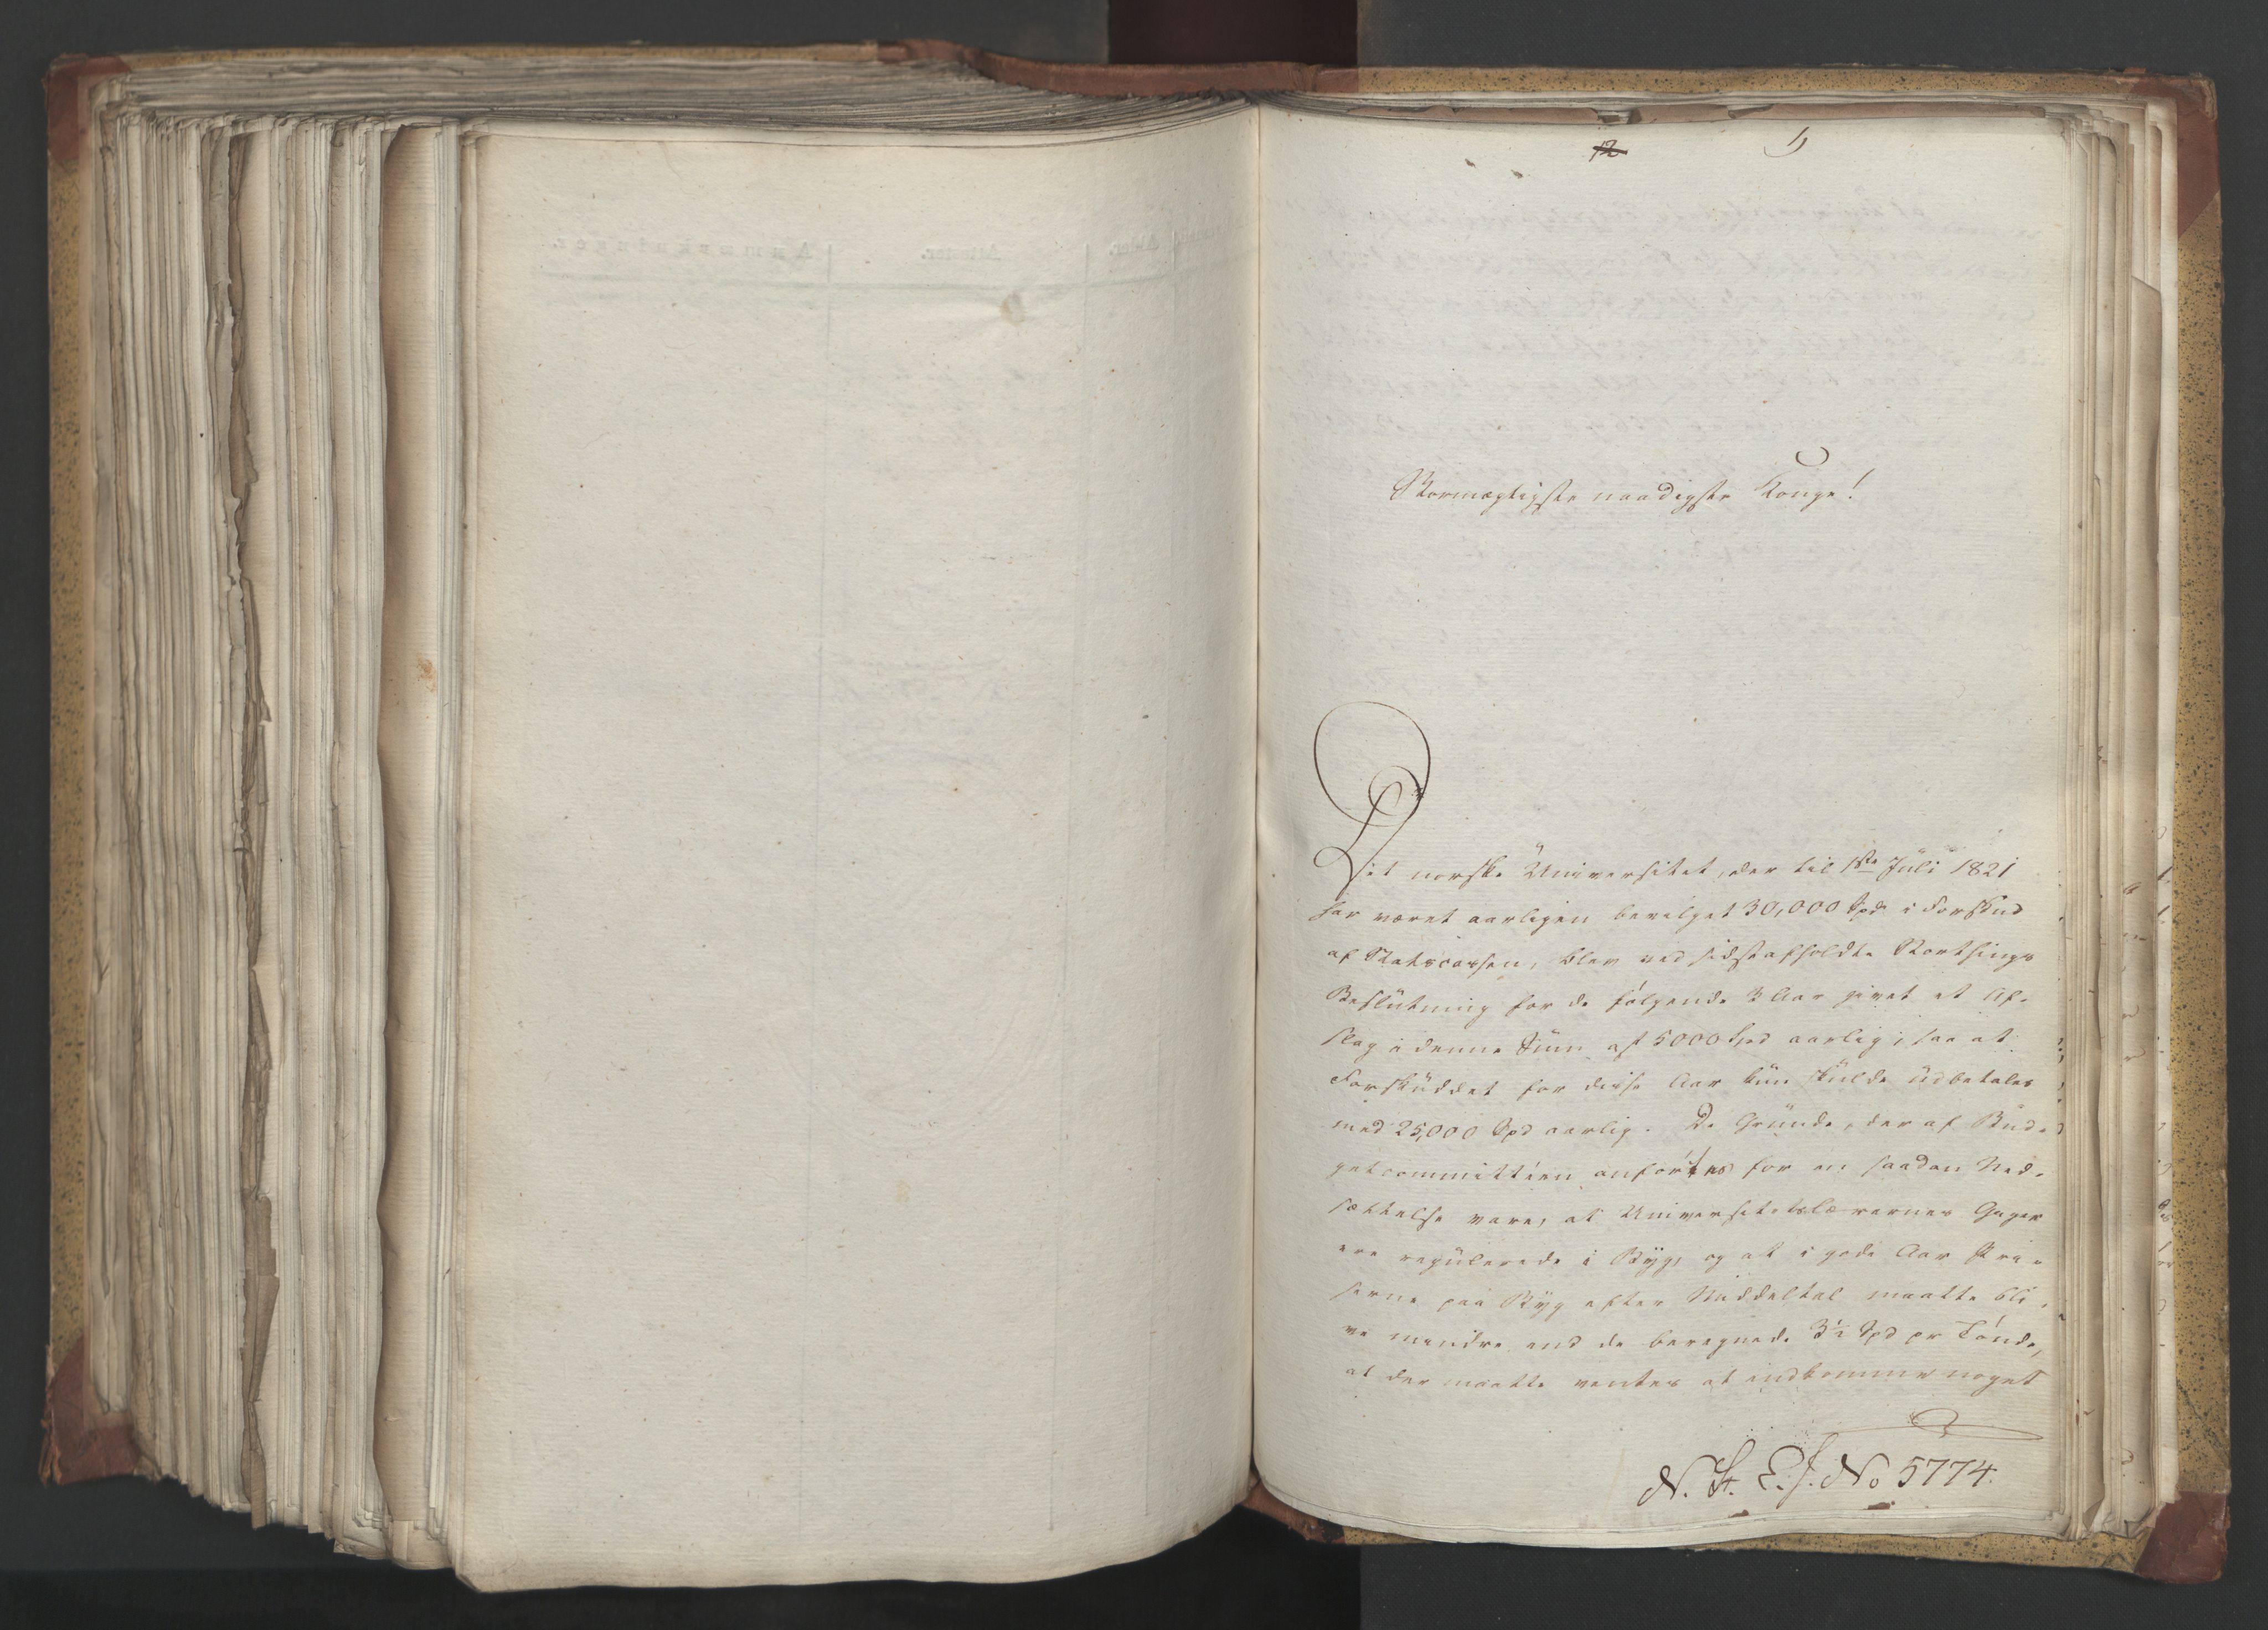 12
Stormægtigste naadigste Konge!
Det norske Universitet, der til 1ste Juli 1821
har været aarligen bevilget 30,000 Spd i Forskud
af Statscassen, blev ved sidstafholdte Storthings
Beslutning for de følgende 3 Aar givet et Af-
slag i denne Sum af 5000 Spd aarlig, saa at
Forskuddet for disse Aar kun skulde udbetales
med 25,000 Spd aarlig. De Grunde, der af Bud-
getcommitteen anførtes for en saadan Ned-
sættelse vare, at Universitetslærernes Gager
ere regulerede i Byg, og at i gode Aar Pri-
serne paa Byg efter Middeltal maatte bli-
ve mindre end de beregnede 3½ Spd pr Tønde,
at der maatte ventes at indkomme noget
N. St. E. J. No 5774.